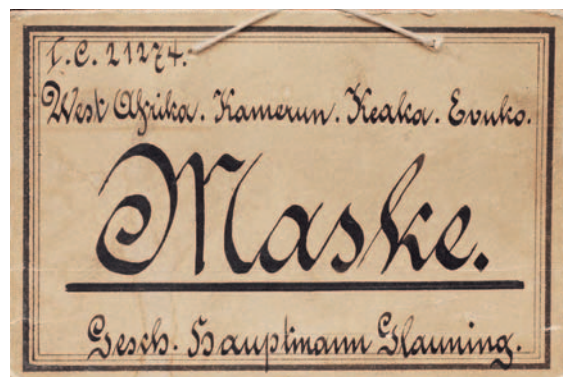 I.C. 21274.
West Afrika. Kamerun. Keaka. Evuko.
Maske.
Gesch. Hauptmann Glauning.